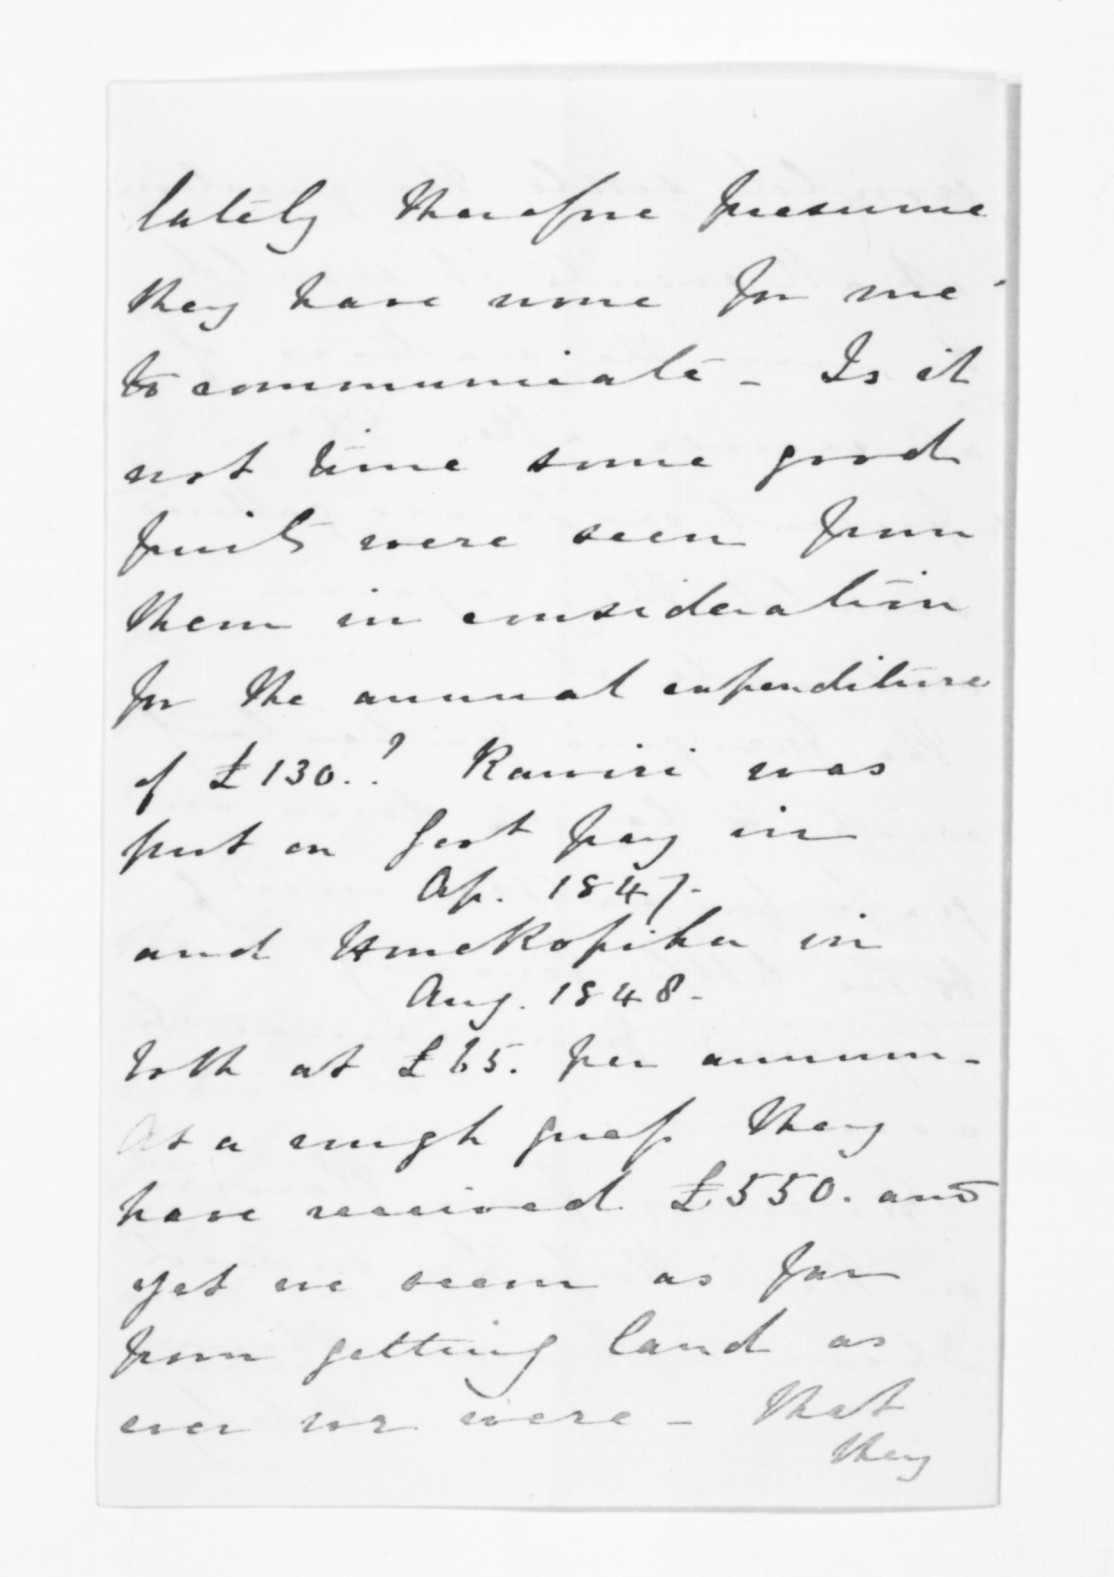 lately therefore presume
they have none for me
to communicate - Is it
not time some good
fruits were seen from
them in consideration
for the annual expenditure
of £130.? Rawiri was
put on Govt pay in
Ap. 1847.
and HoneRopiha in
Aug. 1848.
both at £65. per annum -
At a rough guess they
have received £550. and
yet we seem as far
from getting land as
ever we were - That
they